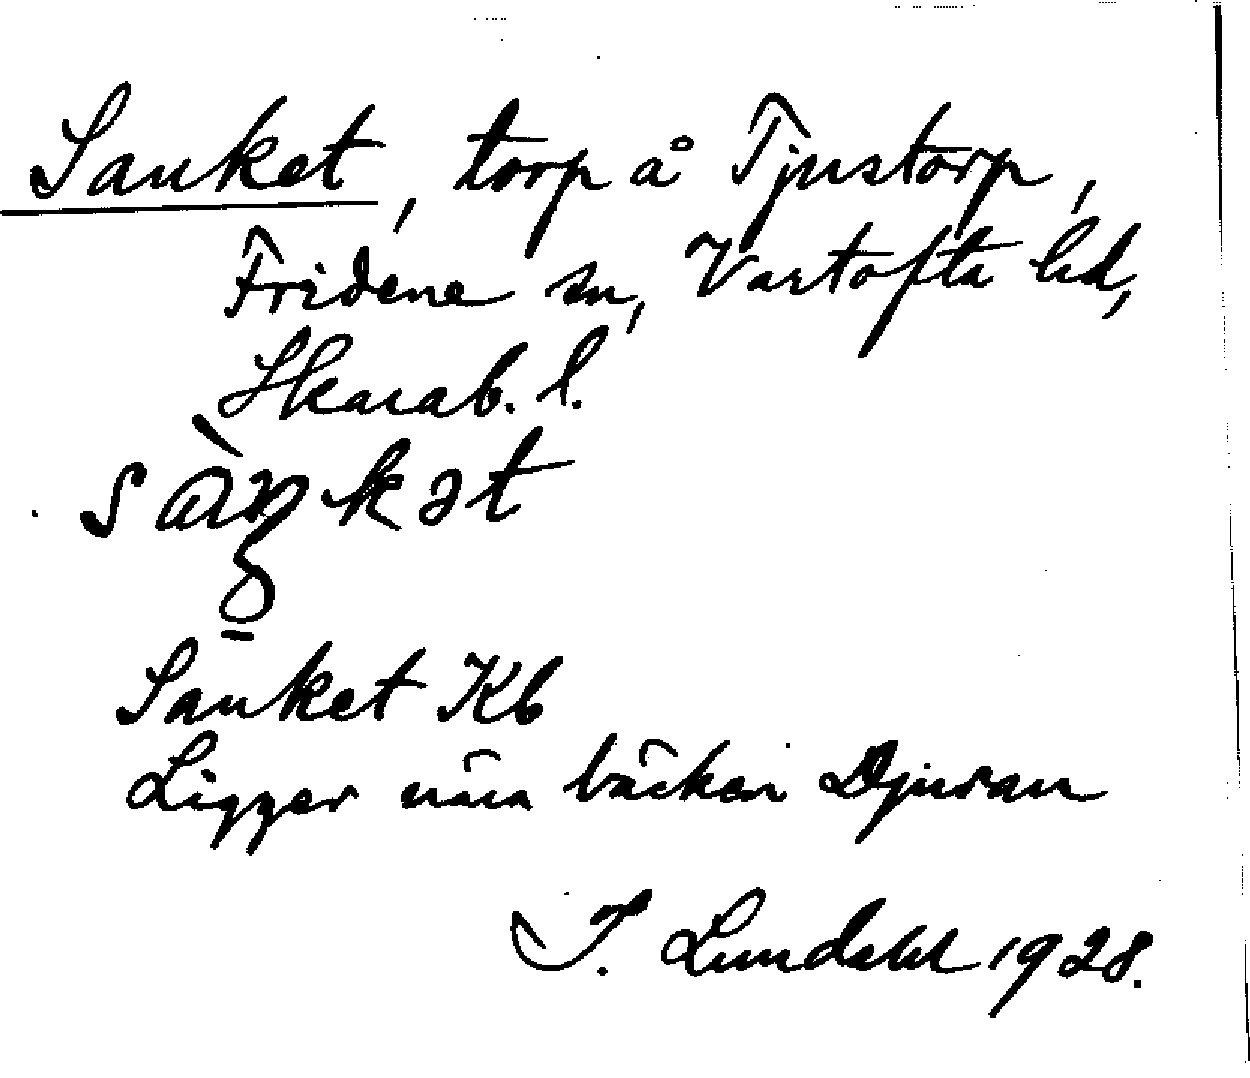 Sanket, torp å Tjustorp,
Fridene sn, Vartofta hd,
Skarab. l.
sàŋkət
Sanket Kb
Ligger nära bäcken Djuran
I. Lundahl 1928.